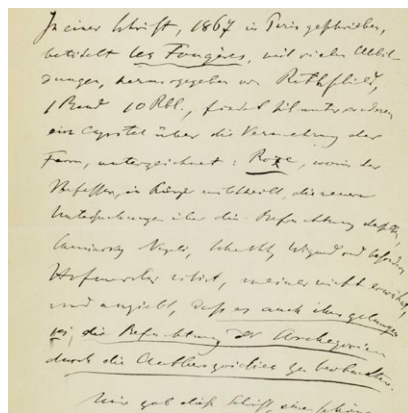 In einer Schrift, 1867 in Paris geschrieben,
betitelt les Fougères, mit vielen Abbil-
dungen, herausgegeben von Rothschild,
1 Band 10 Rbl., findet sich unter anderen
ein Capitel über die Vermehrung der
Farn, unterzeichnet: Roze, worin der
Verfasser, in Kürze mittheilt, die neuern
Untersuchungen über die Befruchtung
Naegeli, Schacht, Wigand und besonders
Hofmeister citirt, meiner nicht erwähnt,
und angiebt, dass es auch ihm gelungen
sei, die Befruchtung der Archegonien
durch die Antherozoidien zu beobachten.
Mir gab diese Schrift, eine schöne